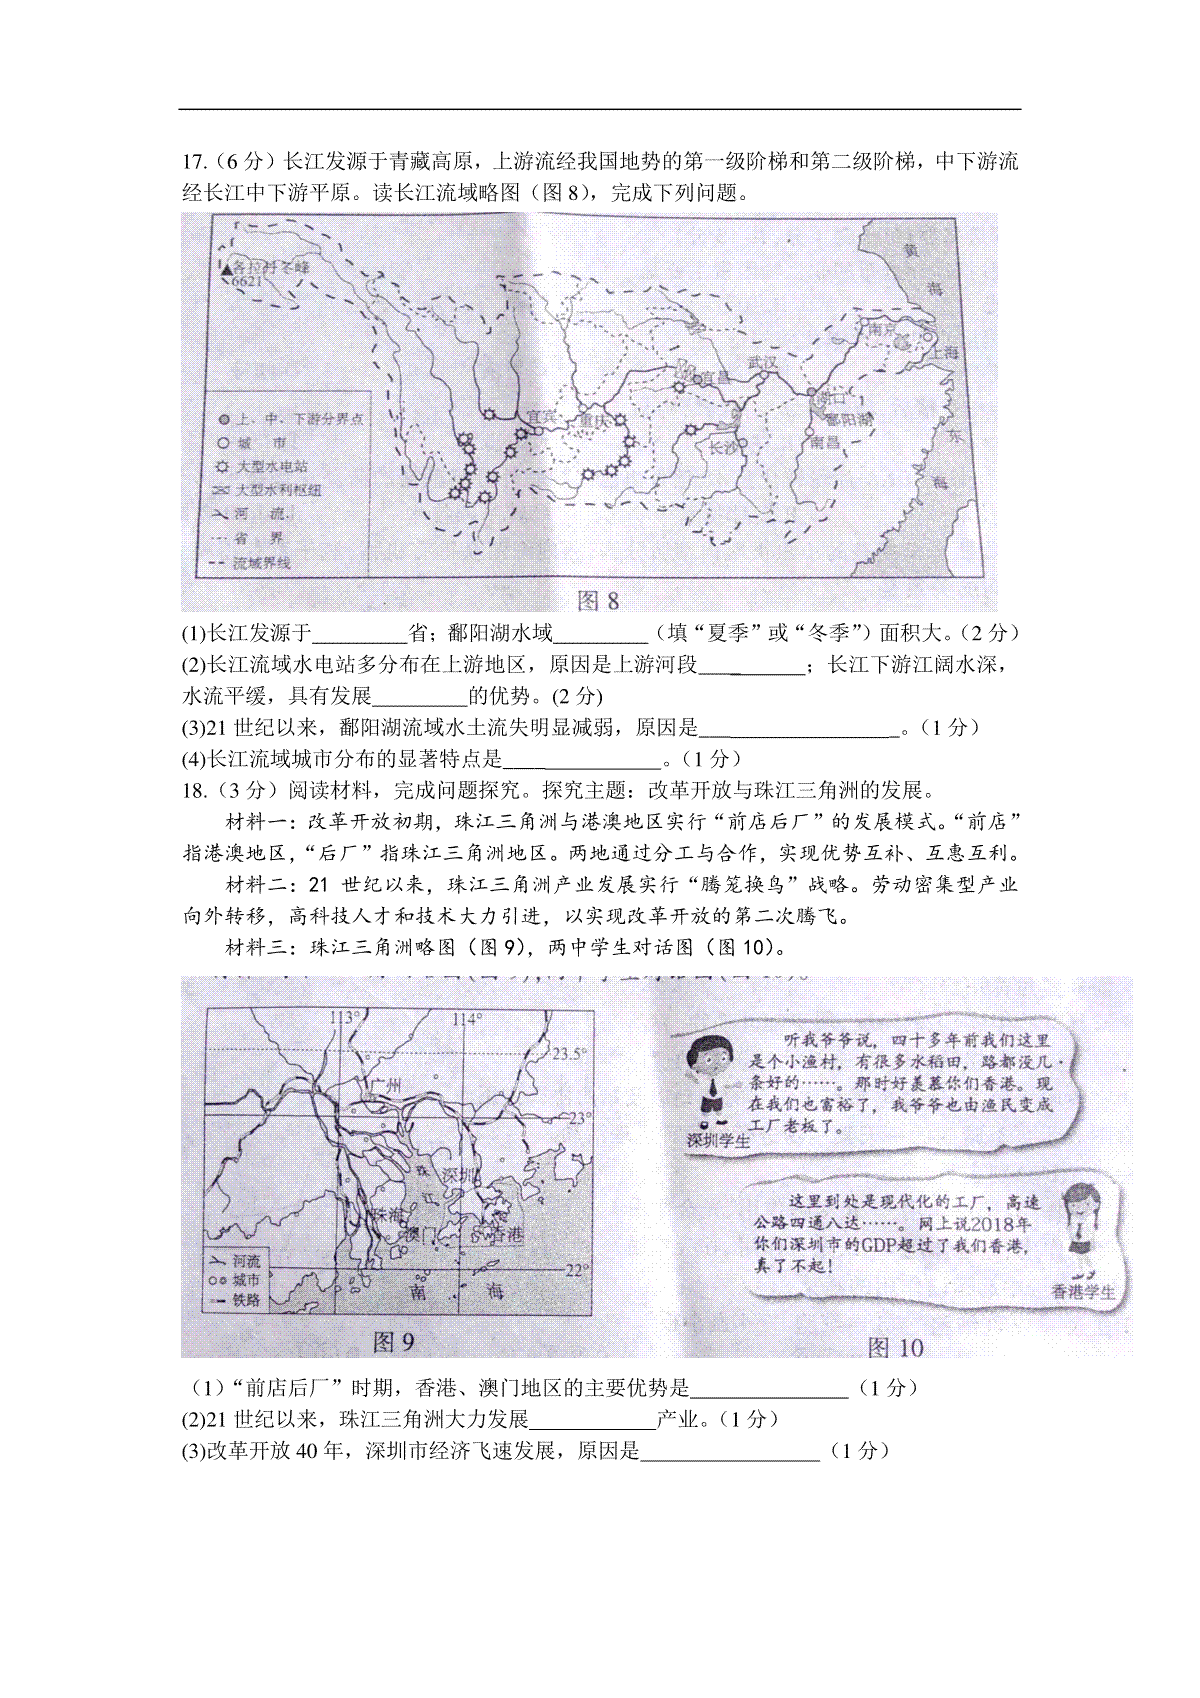 17.（6 分）长江发源于青藏高原，上游流经我国地势的第一级阶梯和第二级阶梯，中下游流
经长江中下游平原。读长江流域略图（图 8），完成下列问题。
各拉丹冬峰
6621
黄
海
南京
上海
武汉
宜昌
湖口
宜宾
重庆
鄱阳湖
长沙
南昌
东
海
上、中、下游分界点
城 市
大型水电站
大型水利枢纽
河 流
省 界
流域界线
图 8
(1)长江发源于_________省；鄱阳湖水域_________（填“夏季”或“冬季”）面积大。（2 分）
(2)长江流域水电站多分布在上游地区，原因是上游河段__________；长江下游江阔水深，
水流平缓，具有发展_________的优势。(2 分)
(3)21 世纪以来，鄱阳湖流域水土流失明显减弱，原因是___________________。（1 分）
(4)长江流域城市分布的显著特点是_______________。（1 分）
18.（3 分）阅读材料，完成问题探究。探究主题：改革开放与珠江三角洲的发展。
材料一：改革开放初期，珠江三角洲与港澳地区实行“前店后厂”的发展模式。“前店”
指港澳地区，“后厂”指珠江三角洲地区。两地通过分工与合作，实现优势互补、互惠互利。
材料二：21 世纪以来，珠江三角洲产业发展实行“腾笼换鸟”战略。劳动密集型产业
向外转移，高科技人才和技术大力引进，以实现改革开放的第二次腾飞。
材料三：珠江三角洲略图（图 9），两中学生对话图（图 10）。
113°
114°
23.5°
广州
23°
珠
江
深圳
珠海
澳门
香港
22°
南 海
河流
城市
铁路
图 9
听我爷爷说，四十多年前我们这里
是个小渔村，有很多水稻田，路都没几
条好的……。那时好羡慕你们香港。现
在我们也富裕了，我爷爷也由渔民变成
工厂老板了。
深圳学生
这里到处是现代化的工厂，高速
公路四通八达……。网上说2018年
你们深圳市的GDP超过了我们香港，
真了不起！
香港学生
图 10
（1）“前店后厂”时期，香港、澳门地区的主要优势是_______________（1 分）
(2)21 世纪以来，珠江三角洲大力发展____________产业。（1 分）
(3)改革开放 40 年，深圳市经济飞速发展，原因是_________________（1 分）